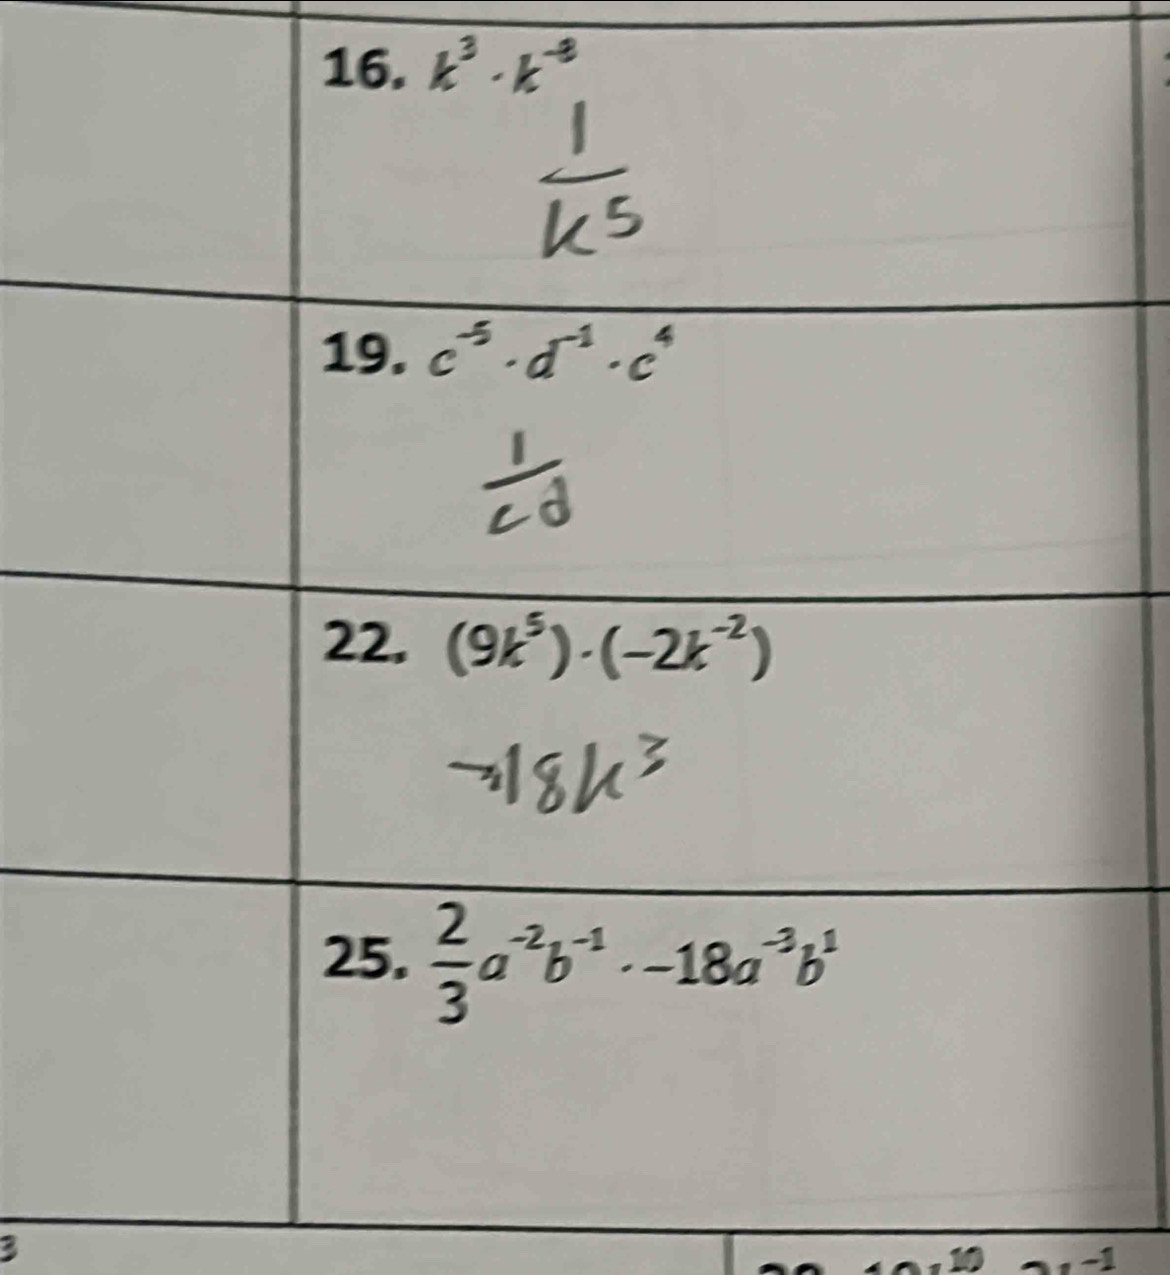 16. k³ · k⁻⁸
1
k⁵
19. c⁻⁵ · d⁻¹ · c⁴
1
cd
22. (9k⁵) · (−2k⁻²)
-18k³
25. 2/3 a⁻²b⁻¹ · −18a⁻³b¹
3